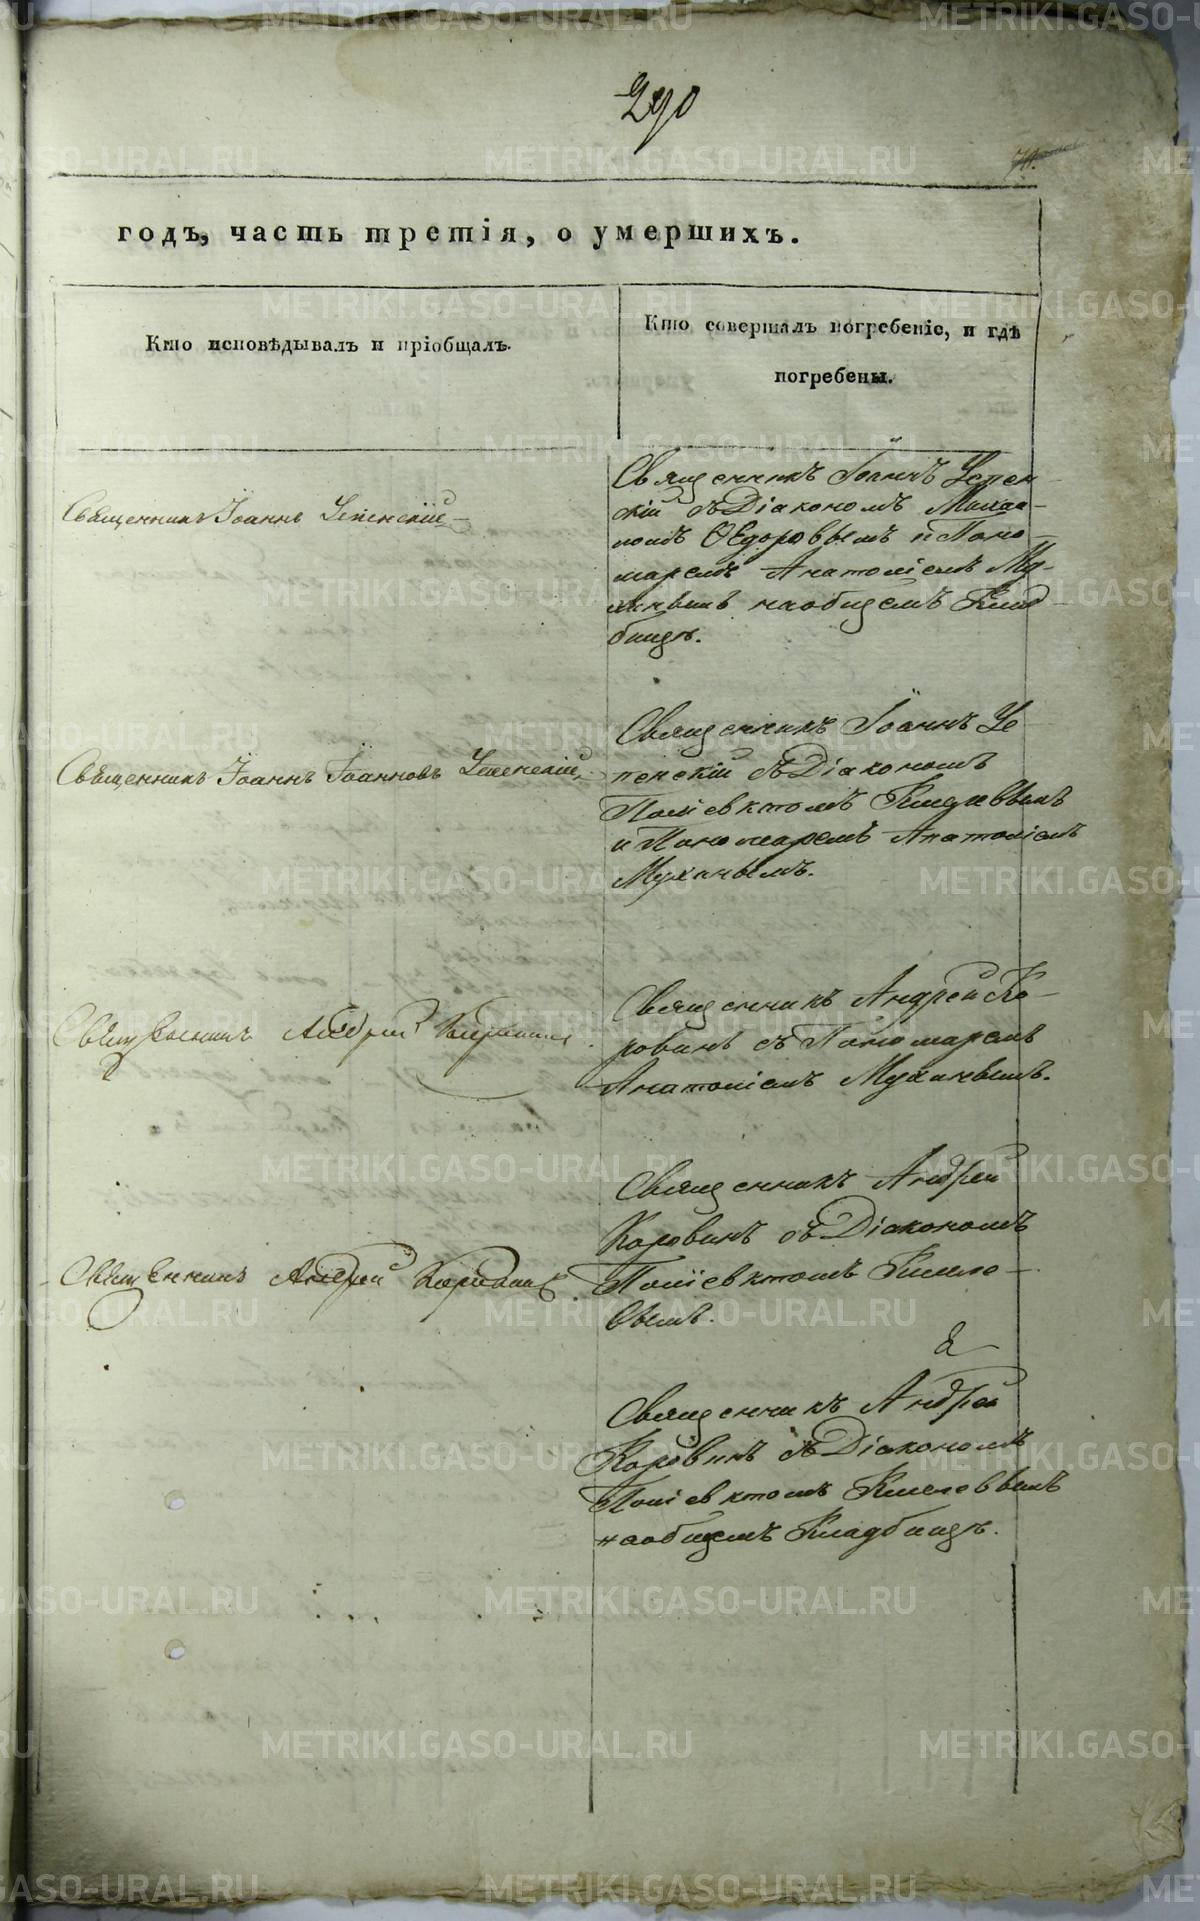 290
годъ, часть третія, о умершихъ.
Кто исповѣдывалъ и пріобщалъ.
Кто совершалъ погребеніе, и гдѣ
погребены.
Священникъ Іоаннъ Успенскій
Священникъ Іоаннъ Успен-
скій съ Діакономъ Михаи-
ломъ Ѳедоровымъ и Поно-
маремъ Анатоліемъ Му-
хинымъ на общемъ Клад-
бищѣ.
Священникъ Іоаннъ Іоанновъ Успенскій
Священникъ Іоаннъ Ус-
пенскій съ Діакономъ
Поліевктомъ
и Пономаремъ Анатоліемъ
Мухинымъ.
Священникъ Андрей Коровинъ
Священникъ Андрей Ко-
ровинъ съ Пономаремъ
Анатоліемъ Мухинымъ.
Священникъ Андрей Коровинъ
Священникъ Андрей
Коровинъ съ Діакономъ
Поліевктомъ Киселе-
вымъ.
Священникъ Андрей
Коровинъ съ Діакономъ
Поліевктомъ Киселевымъ
на общемъ Кладбищѣ.
METRIKI.GASO-URAL.RU